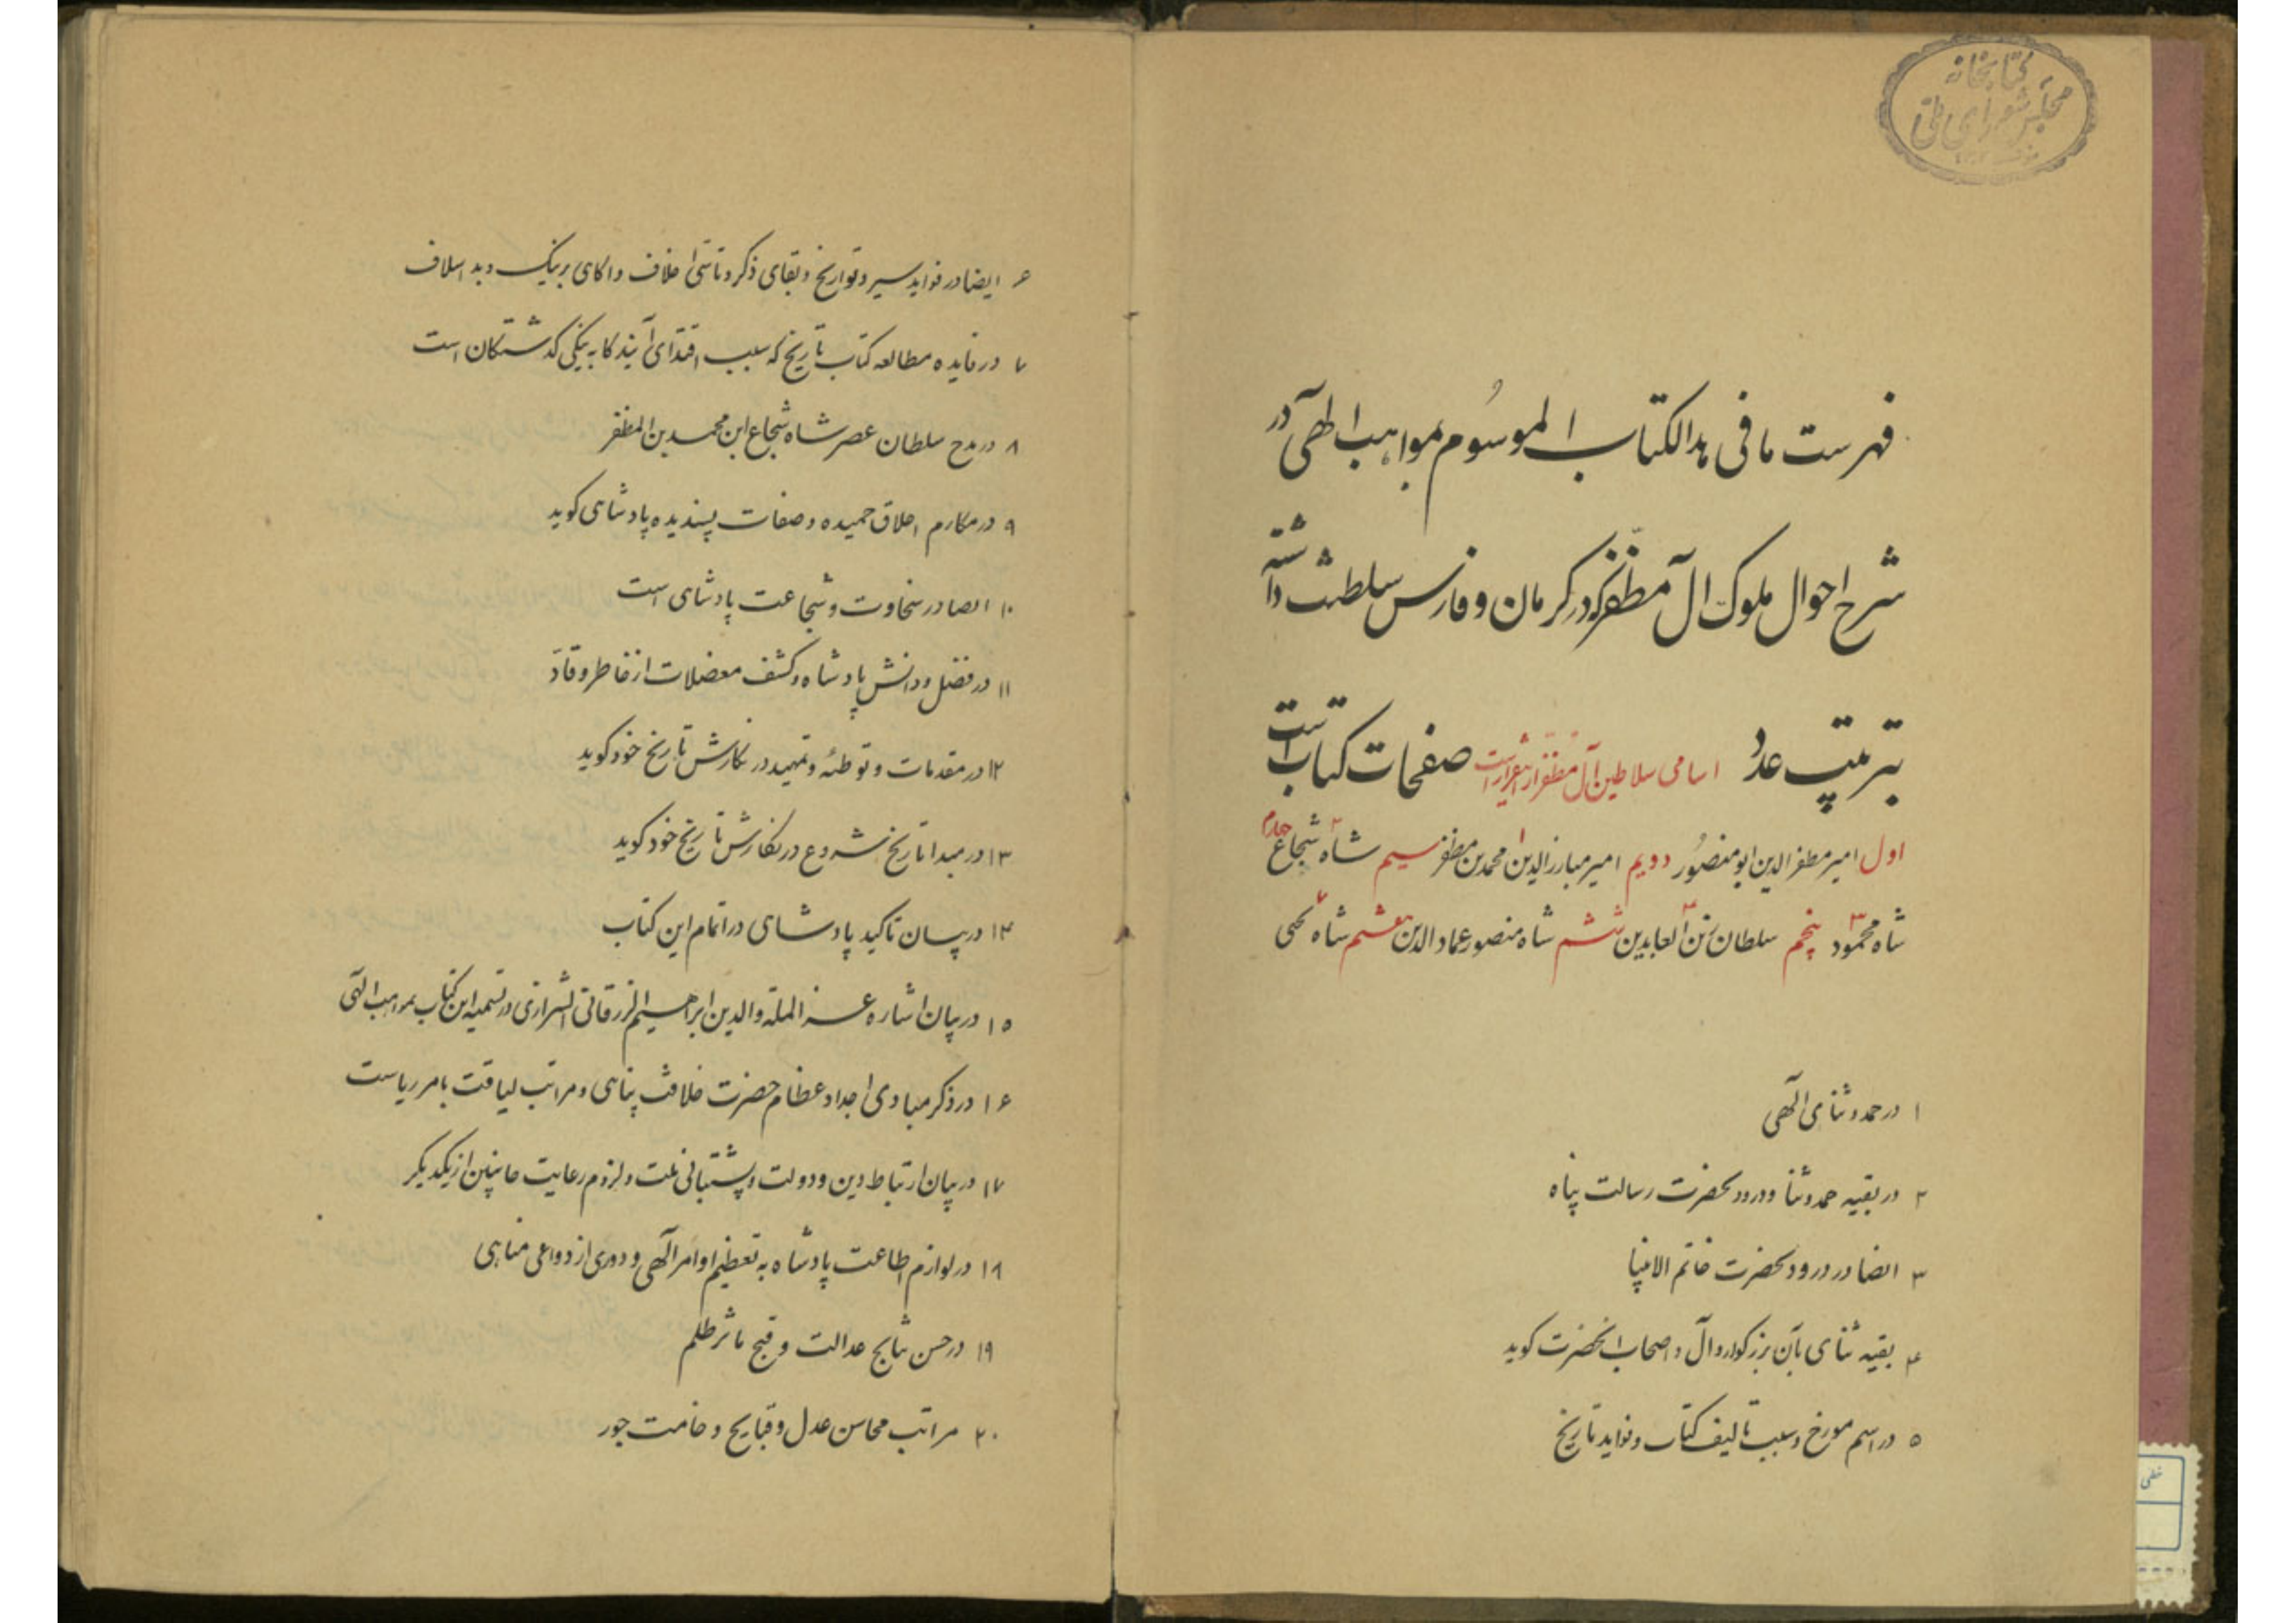 کتابخانه
مجلس شورای ملی
فهرست ما فی هذالکتاب الموسُوم بمواهب الهی در
شرح احوال ملوک آل مظفر که در کرمان و فارس سلطنت داشته
بترتیب عدد صفحات کتاب است
اسامی سلاطین آل مظفر ازینقرار است
اول امیر مظفر الدین ابو منصُور دویم امیر مبارز الدین ۱ محمد بن مظفر سیم شاه ۲ شجاع چهارم
شاه محمود ۳ پنجم سلطان زین العابدین ۴ ششم شاه منصور عماد الدین هفتم شاه یحیی
۱ در حمد و ثنای الٓهی
۲ در بقیه حمد و ثنا و درود بحضرت رسالت پناه
۳ ایضا در درود بحضرت خاتم الانبیا
۴ بقیه ثنای بآن بزرگوار و آل و اصحاب آنحضرت گوید
۵ در اسم مورخ و سبب تالیف کتاب و فواید تاریخ
۶ ایضا در فواید سیر و تواریخ و بقای ذکر و تاسی اخلاف و اکاهی بر نیک و بد اسلاف
۷ در فایده مطالعه کتاب تاریخ که سبب اقتدای آیندکا به نیکی کذشتکان است
۸ در مدح سلطان عصر شاه شجاع ابن محمد بن المظفر
۹ در مکارم اخلاق حمیده و صفات پسندیده پادشاهی کوید
۱۰ ایضا در سخاوت و شجاعت پادشاهی است
۱۱ در فضل و دانش پادشاه و کشف معضلات از خاطر وقاد
۱۲ در مقدمات و توطئه و تمهید در نکارش تاریخ خود کوید
۱۳ در مبدا تاریخ شروع در نکارش تاریخ خود کوید
۱۴ در بیان تاکید پادشاهی در اتمام این کتاب
۱۵ در بیان اشاره عز الملة والدین ابراهیم الزرقانی الشیرازی در تسمیه این کتاب بمواهب الٓهی
۱۶ در ذکر مبادی اجداد عظام حضرت خلافت پناهی و مراتب لیاقت بامر ریاست
۱۷ در بیان ارتباط دین و دولت و پشتبانی ملت و لزوم رعایت جانبین از یکدیکر
۱۸ در لوازم اطاعت پادشاه به تعظیم اوامر الٓهی و دوری از دواعی مناهی
۱۹ در حسن نتایج عدالت و قبح ماثر ظلم
۲۰ مراتب محاسن عدل و قبایح وخامت جور